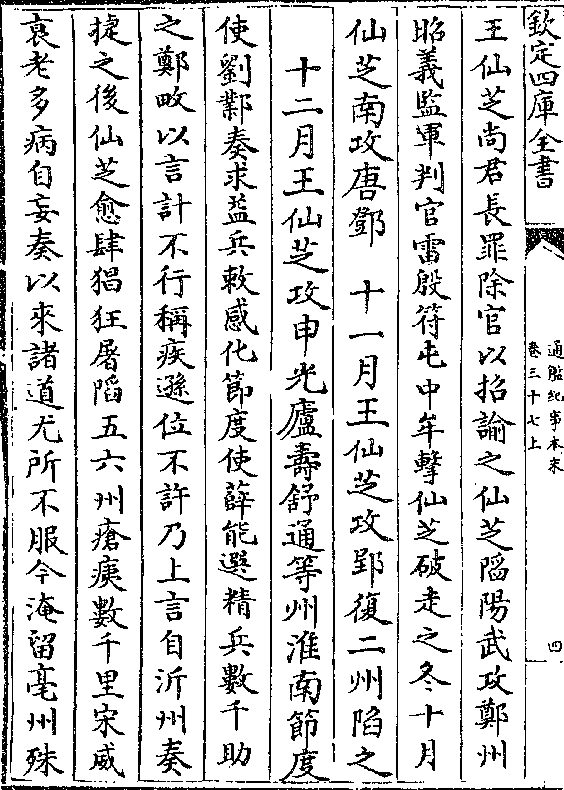 欽定四庫全書
通鑑紀事本末
卷三十七上
四
王仙芝尚君長罪除官以招諭之仙芝陷陽武攻鄭州
昭義監軍判官雷殷符屯中牟擊仙芝破走之冬十月
仙芝南攻唐鄧　十一月王仙芝攻郢復二州陷之
十二月王仙芝攻申光廬壽舒通等州淮南節度
使劉鄴奏求益兵敕感化節度使薛能選精兵數千助
之鄭畋以言計不行稱疾遜位不許乃上言自沂州奏
捷之後仙芝愈肆猖狂屠陷五六州瘡痍數千里宋威
衰老多病自妄奏以來諸道尤所不服今淹留亳州殊